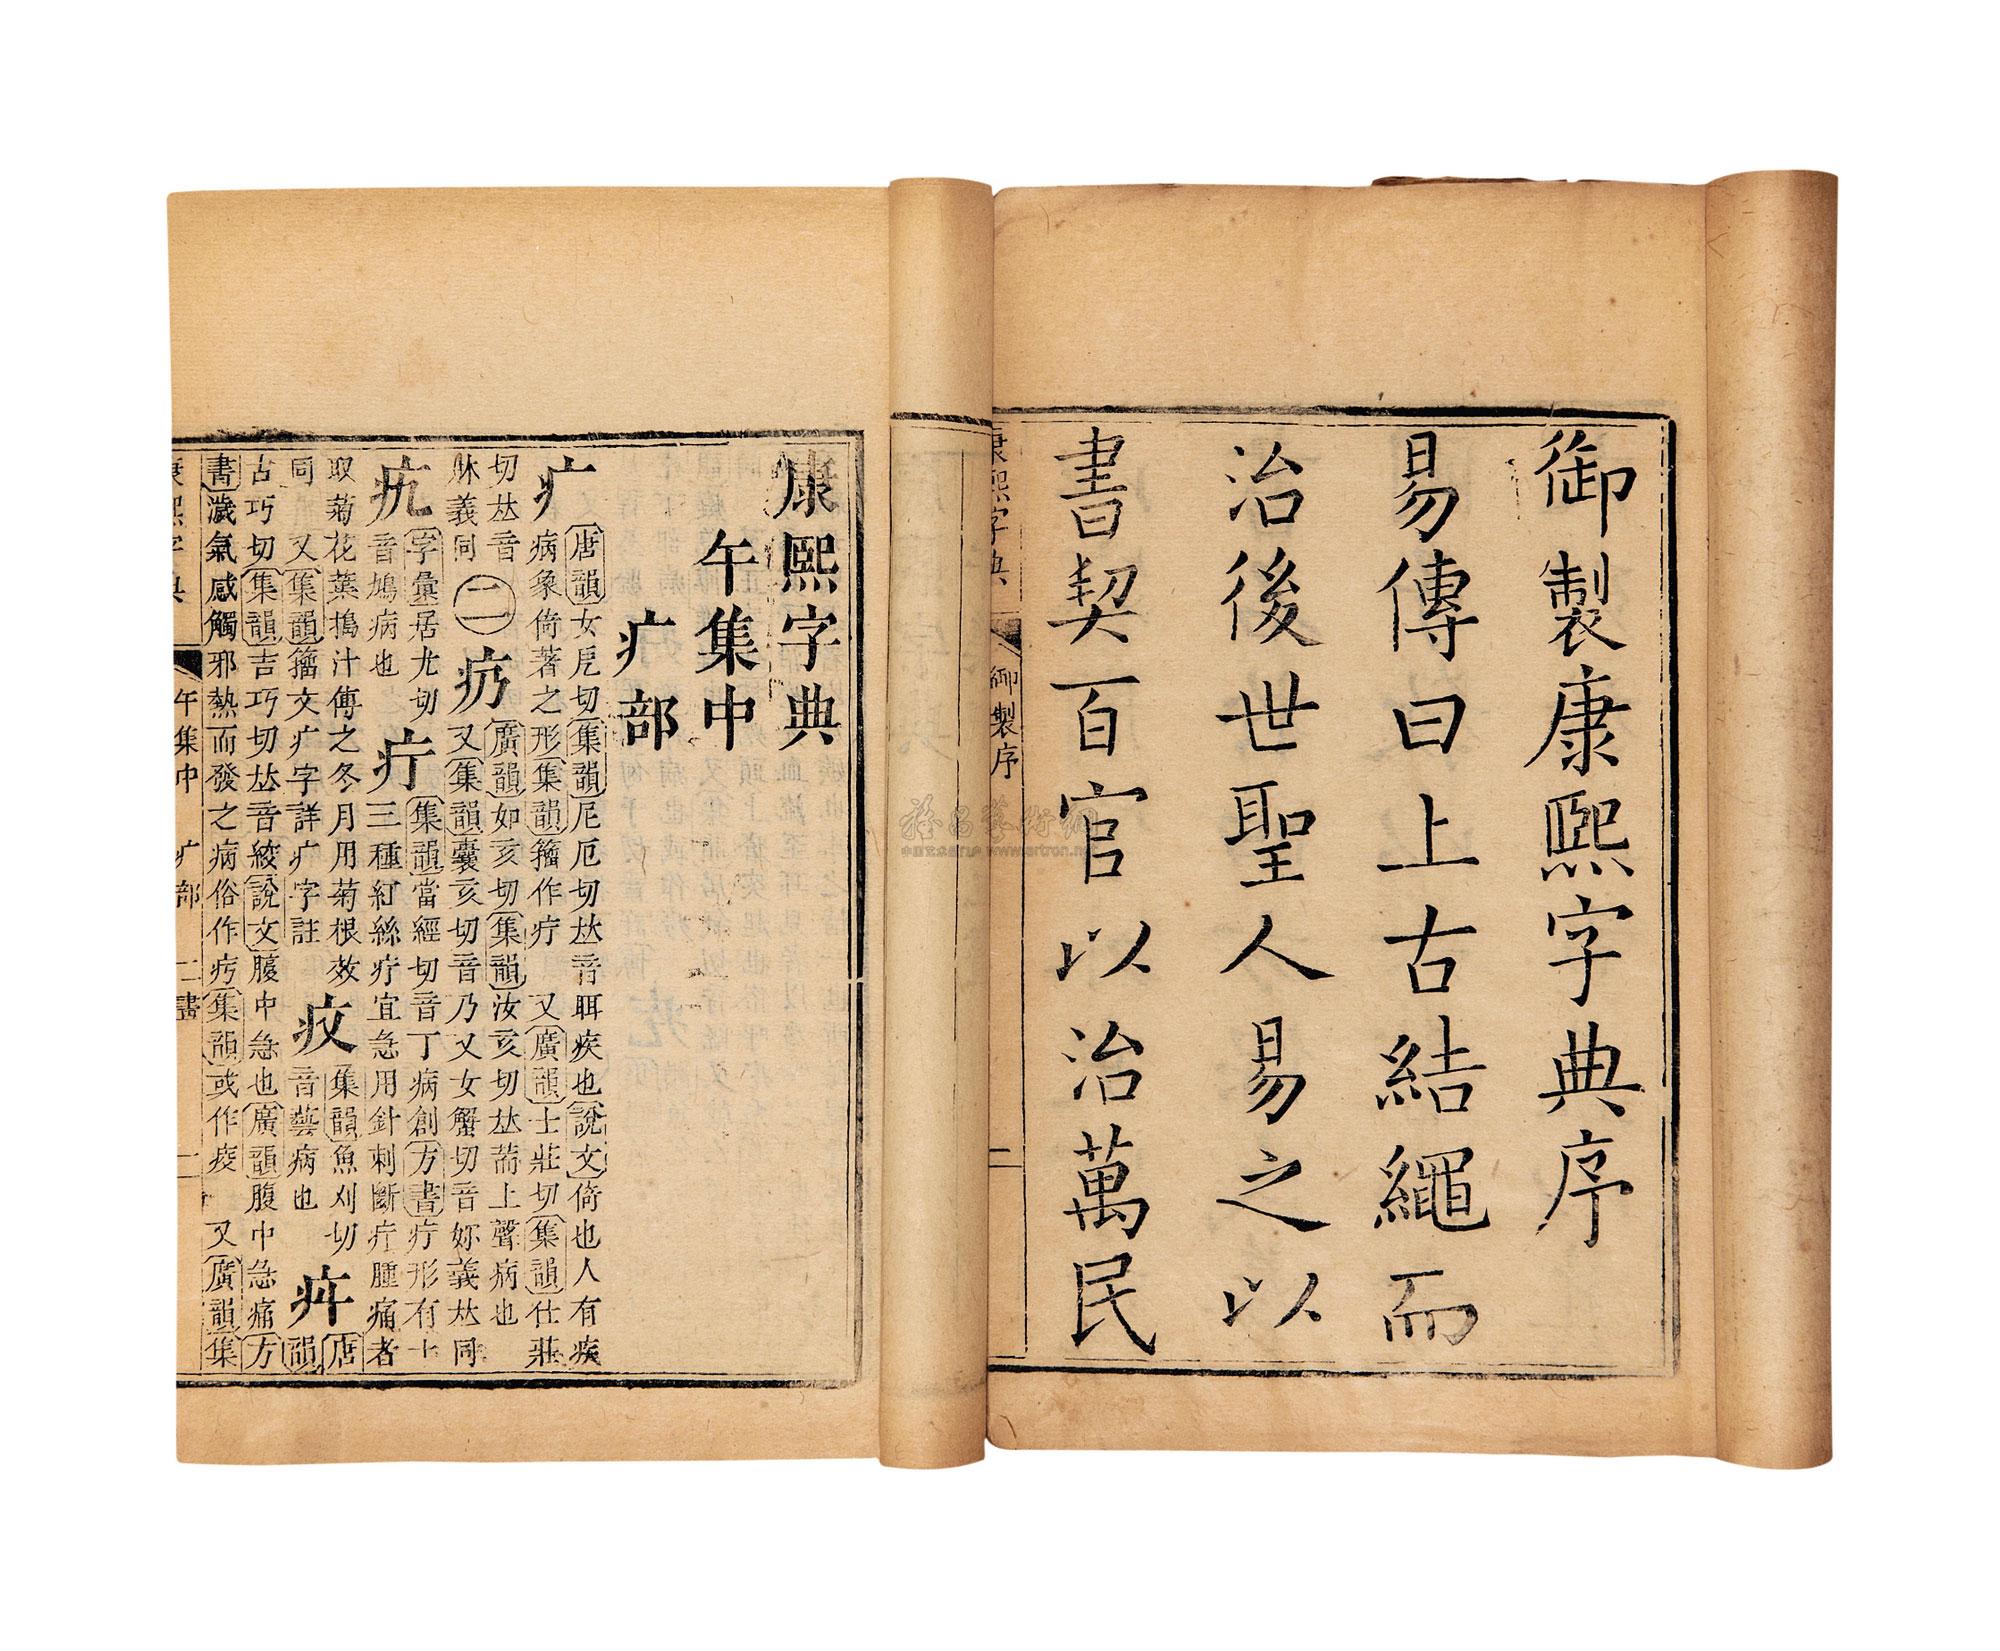 御製康熙字典序
易傳曰上古結繩而
治後世聖人易之以
書契百官以治萬民
康熙字典
御製序
二
康熙字典
午集中
疒部
疒
唐韻女戹切集韻尼厄切𠀤音眲疾也說文倚也人有疾
病象倚著之形集韻籀作疔 又廣韻士莊切集韻仕莊
切𠀤音
牀義同
二
疓
廣韻如亥切集韻汝亥切𠀤荋上聲病也
又集韻囊亥切音乃又女蟹切音妳義𠀤同
疚
字彙居尤切
音鳩病也
疔
集韻當經切音丁病創方書疔形有十
三種紅絲疔宜急用針刺斷疔腫痛者
取菊花葉搗汁傅之冬月用菊根效
疫
集韻魚刈切
音藝病也
同 又集韻籀文疒字詳疒字註
疛
唐韻
古巧切集韻吉巧切𠀤音絞說文腹中急也廣韻腹中急痛方
書濊氣感觸邪熱而發之病俗作疞集韻或作㽱 又廣韻集
康熙字典
午集中 疒部 二畫
一
www.artron.net